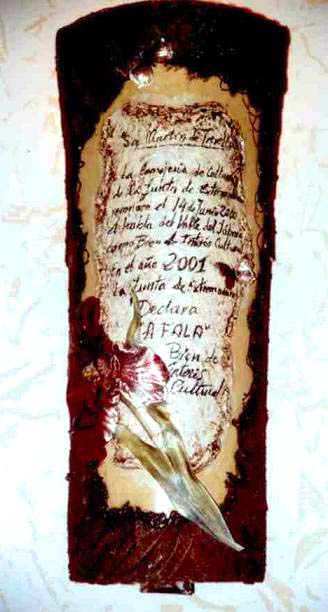 Sn Martín de Trevejo
la Consejería de Cultura
de la Junta de Extremadura
reconoce el 14 de Junio 2000
el Habla del Valle del Jálama
como Bien de Interés Cultural
en el año 2001
la Junta de Extremadura
Declara
"A FALA"
Bien de
Interés
Cultural